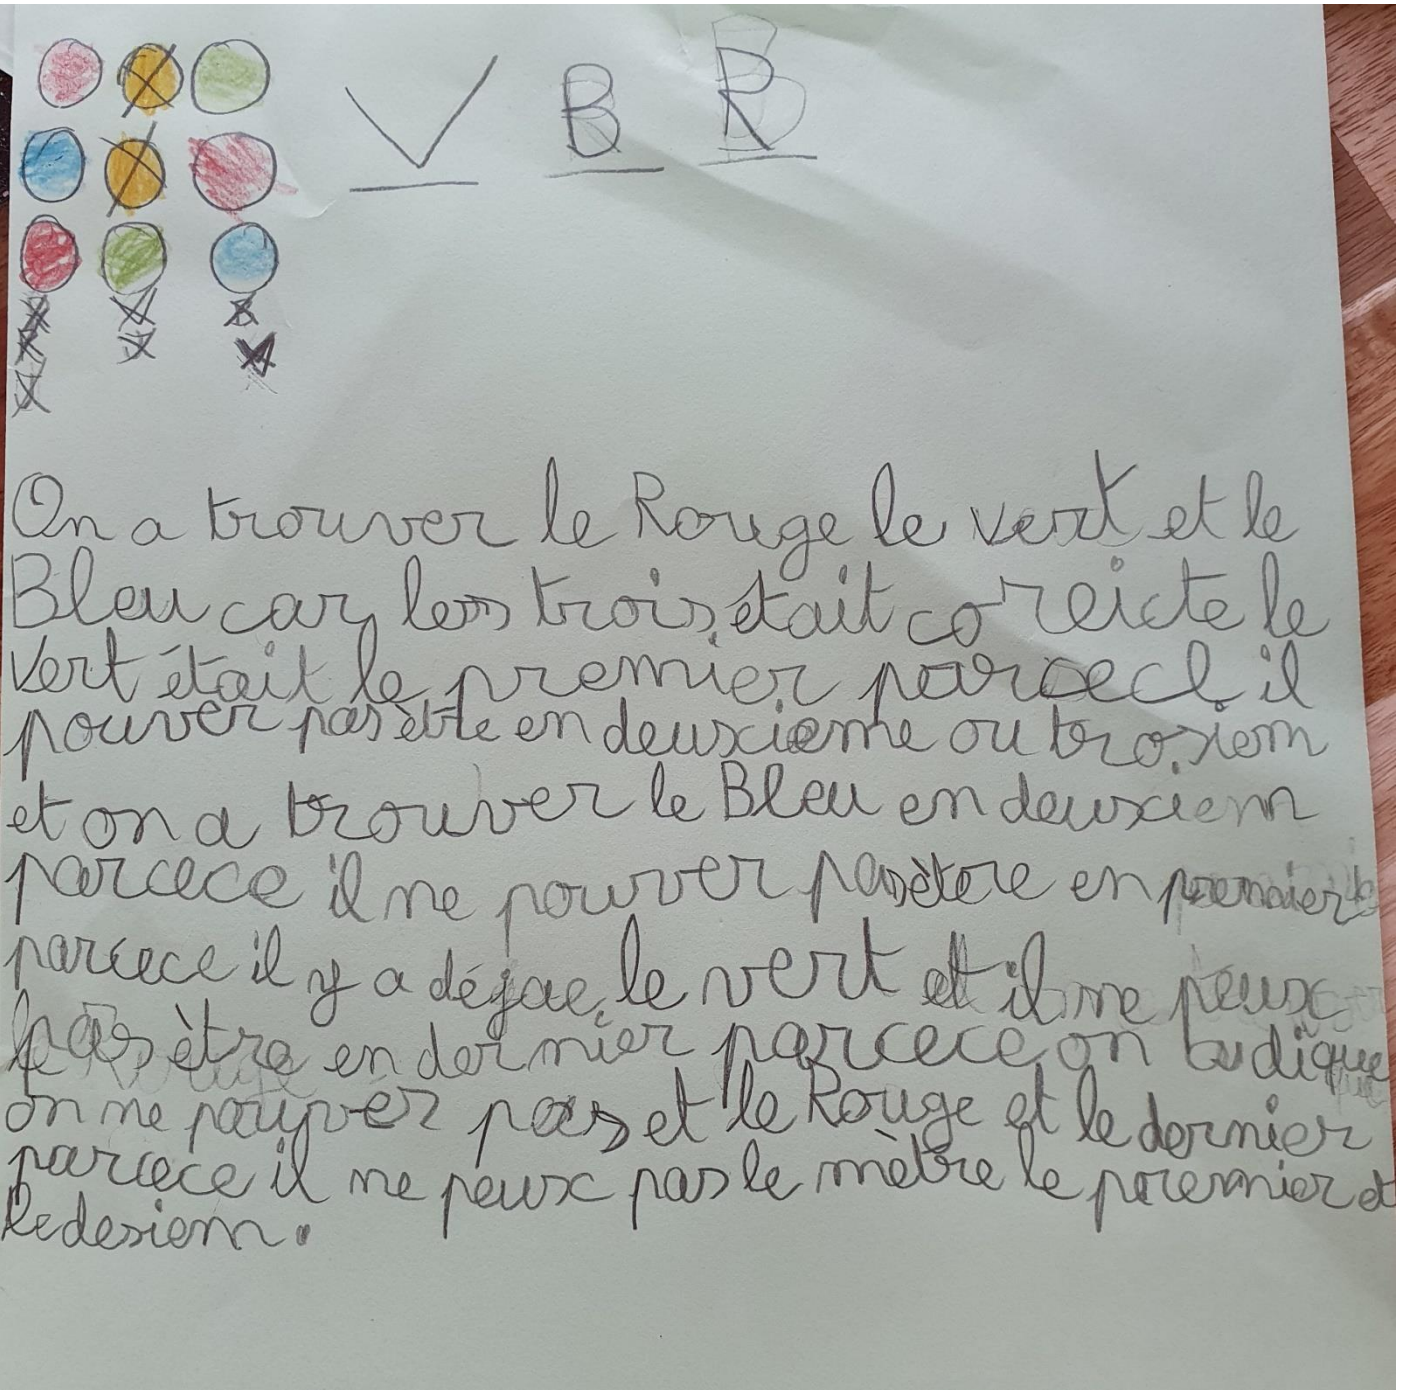 V B R
On a trouver le Rouge le vert et le
Bleu car les trois était coreicte le
vert était le premier parcecl il
pouver pas être en deuxieme ou trosiem
et on a trouver le Bleu en deuxiem
parcece il ne pouver pas ètere en premier
parcece il y a déjae le vert et il ne peux
pas ètre en dernier parcece on
on ne pouver pas et le Rouge et le dernier
parcece il ne peux pas le mètre le premier et
le desiem.